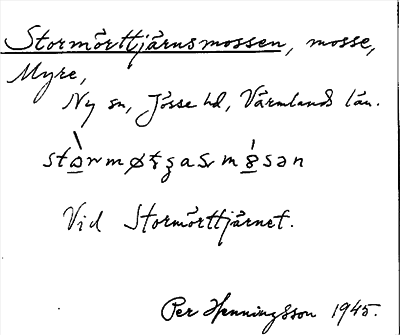 Stormörttjärnsmossen, mosse,
Myre,
Ny sn, Jösse hd, Värmlands län.
Vid Stormörttjärnet.
Per Henningsson 1945.